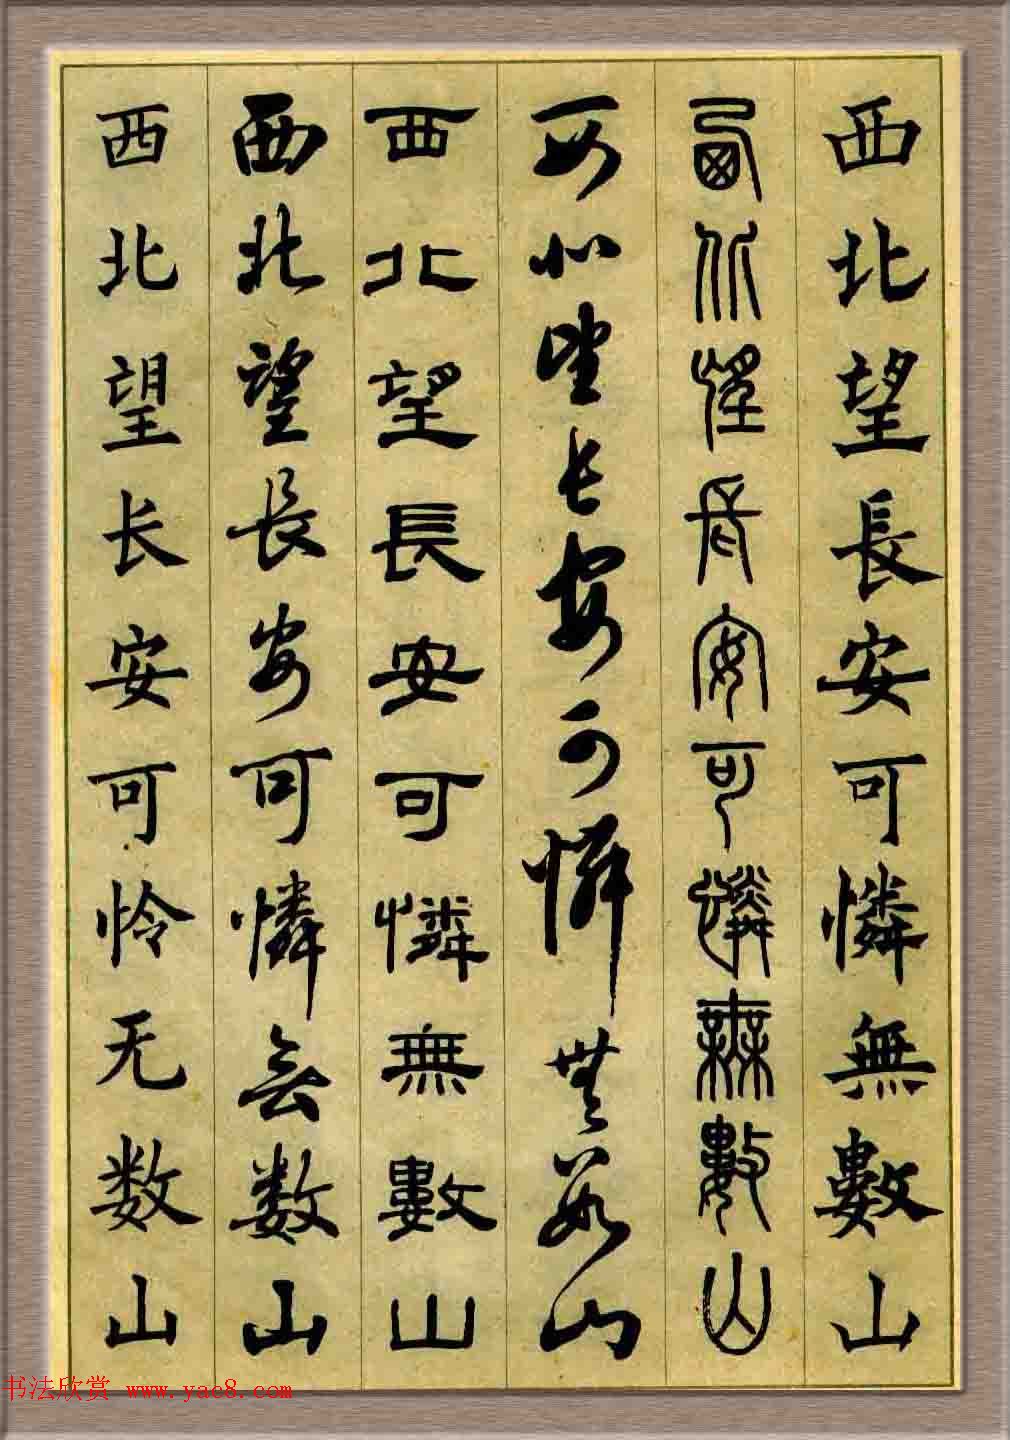 西北望長安可憐無數山
西北望長安可憐無數山
西北望長安可憐無數山
西北望長安可憐無數山
西北望長安可憐無数山
西北望长安可怜无数山
书法欣赏 www.yac8.com